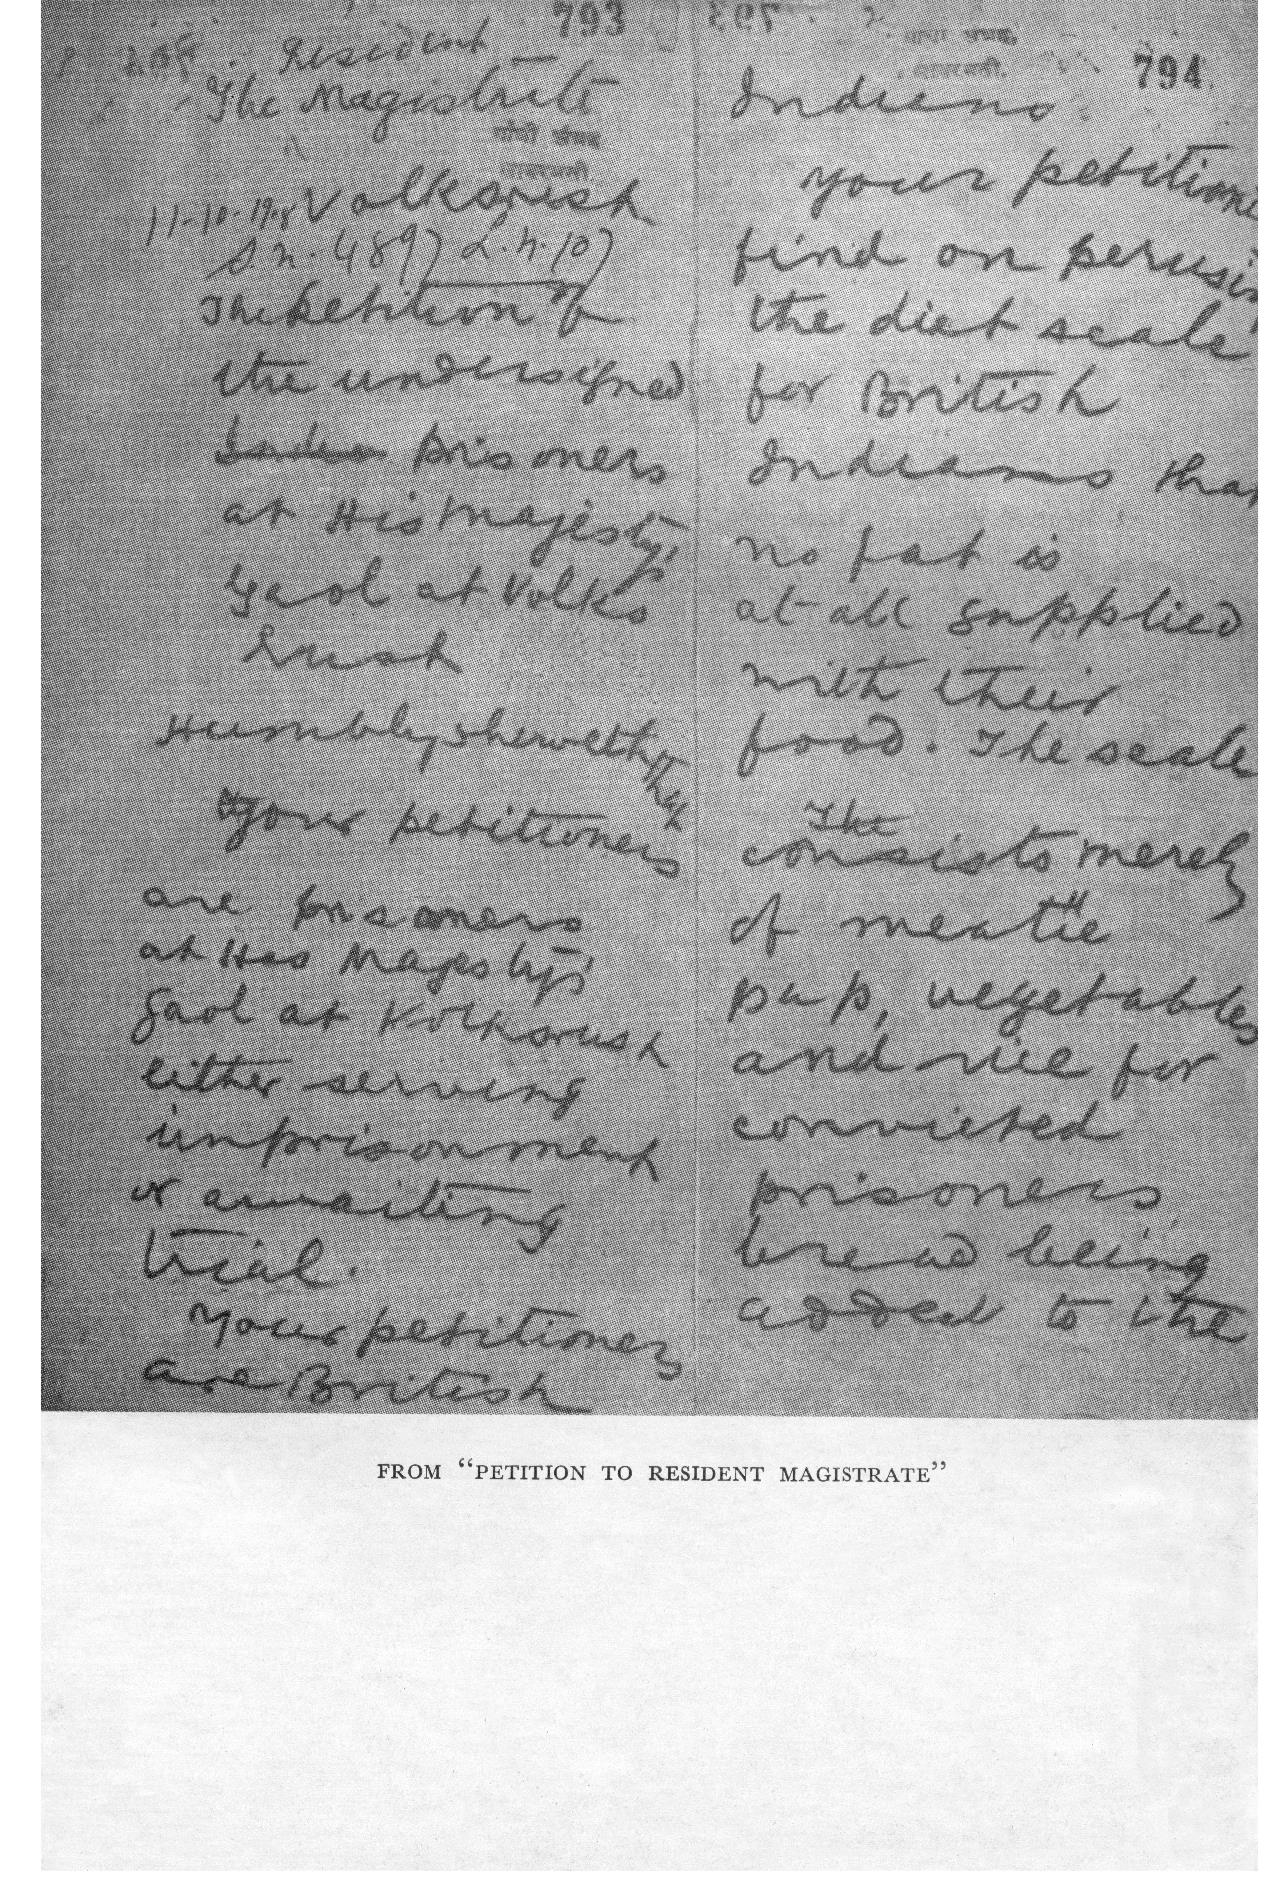 793
Resident
The Magistrate
गांधी संग्रह
साबरमती
Volksrust
11-10-1908
S. N. 4897
The petition of
the undersigned
Indian prisoners
at His Majesty's
Gaol at Volks
Srust
Humbly sheweth that
Your petitioners
are prisoners
at His Majesty's
Gaol at Volksrust
either serving
imprisonment
or awaiting
trial.
Your petitioners
are British
794
Indians.
Your petitione
find on perusin
the diet scale
for British
Indians that
no fat is
at all supplied
with their
food. The scale
The
consists merely
of mealie
pap, vegetables
and rice for
convicted
prisoners
bread being
added to the
FROM “PETITION TO RESIDENT MAGISTRATE”